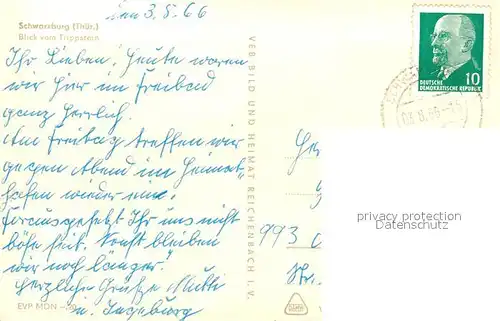 Schwarzburg (Thür.)
Blick vom Trippstein
den 3.8.66
Ihr Lieben! Heute waren
wir hier im Freibad
ganz herrlich.
Am Freitag treffen wir
gegen Abend im Heimat-
hafen wieder ein.
Vorausgesetzt Ihr uns nicht
böse seit. Sonst bleiben
wir noch länger.
Herzliche Grüße Mutti
u. Ingeburg
EVP MDN -,20
VEB BILD UND HEIMAT REICHENBACH I. V.
10
DEUTSCHE
DEMOKRATISCHE REPUBLIK
03.8.66
privacy protection
Datenschutz
993
Str.